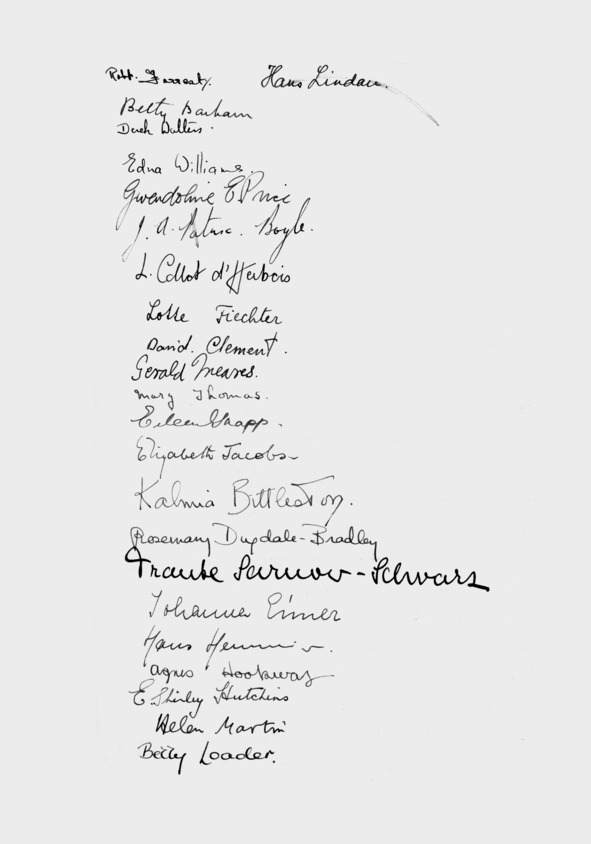 Robt. Farrealy. Hans Lindau.
Betty Barham
Derek Walters.
Edna Williams.
Gwendoline E Price
J. A. Boyle.
L. Collot d'Herbois
Lotte Fiechter
David. Clement.
Gerald Meares.
Mary Thomas.
Eileen
Elizabeth Jacobs
Kalmia Bittleston.
Rosemary Dugdale-Bradley
Traute Sarnow-Schwarz
Johanna
Hans
Agnes Hookway
E. Shirley Hutchins
Helen Martin
Betty Loader.